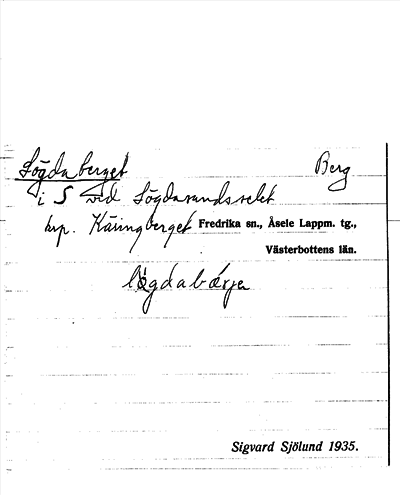 Lögdaberget Berg
i S vid Lögdarandsselet
krp. Käringberget Fredrika sn., Åsele Lappm. tg.,
Västerbottens län.
lögdabärje
Sigvard Sjölund 1935.